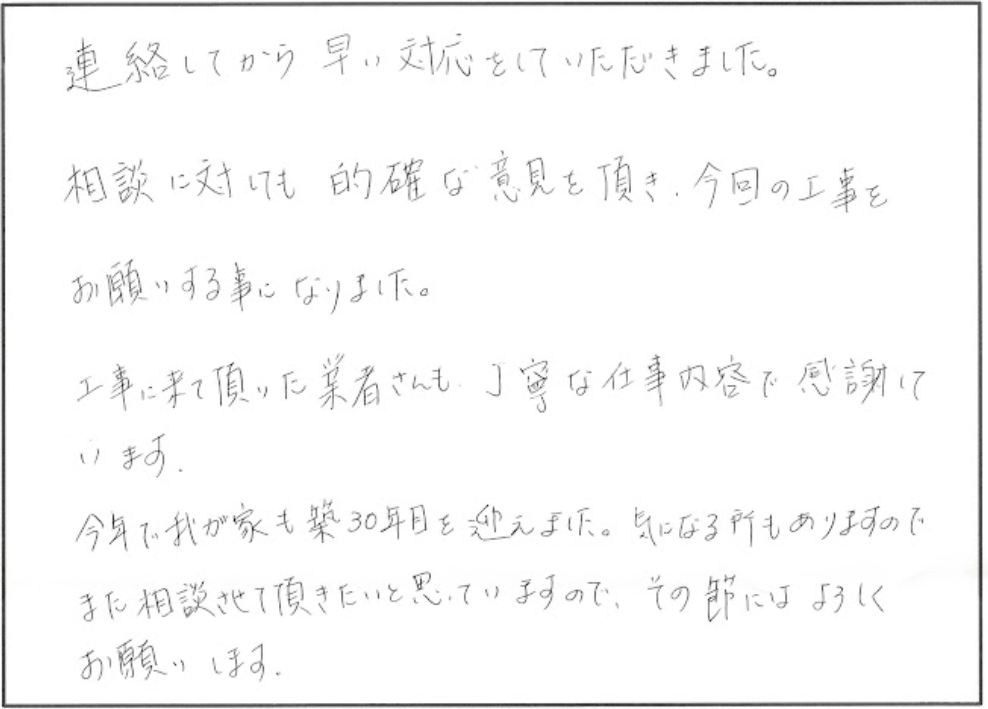 連絡してから早い対応をしていただきました。
相談に対しても的確な意見を頂き、今回の工事を
お願いする事になりました。
工事に来て頂いた業者さんも、丁寧な仕事内容で感謝して
います。
今年で我が家も築30年目を迎えました。気になる所もありますので
また相談させて頂きたいと思っていますので、その節にはよろしく
お願いします。